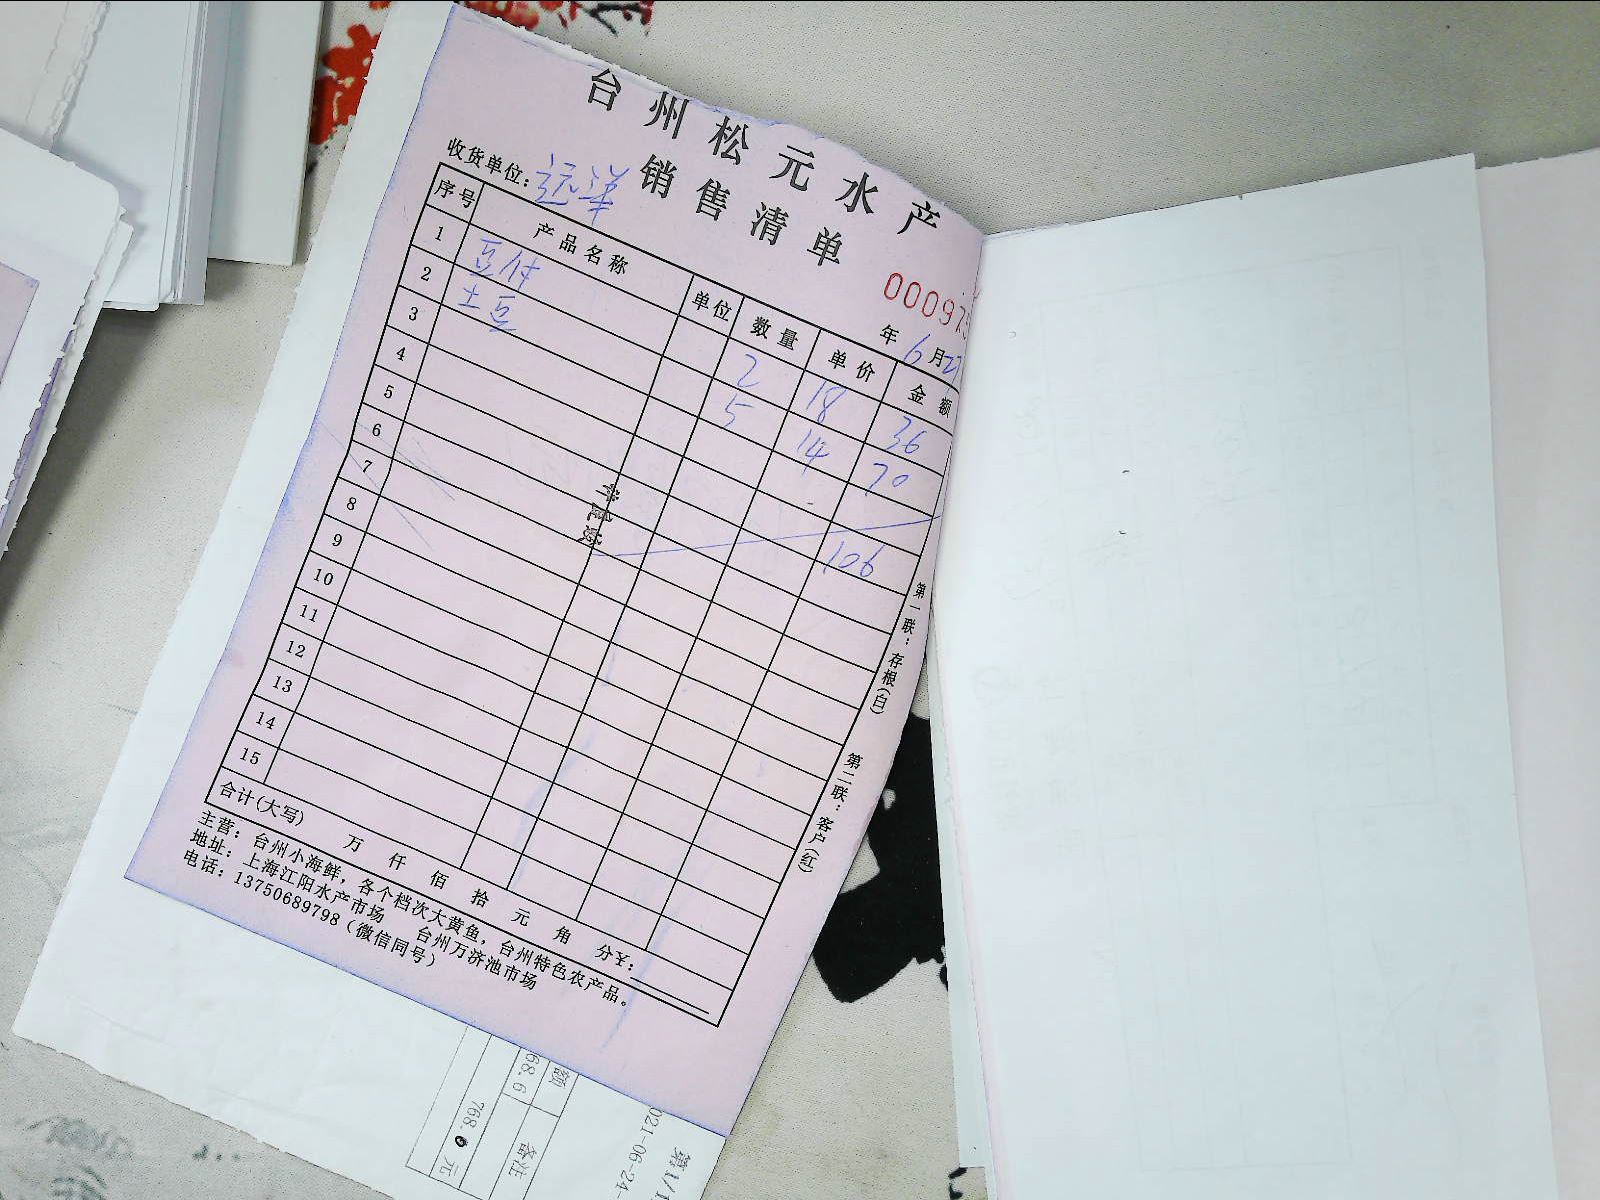 台州松元水产
销售清单
收货单位:远洋
00097
年 6月27
序号 产品名称 单位 数量 单价 金额
1 豆付 2 18 36
2 土豆 5 14 70
3
4 106
5
6
7
8
9
10
11
12
13
14
15
合计(大写) 万 仟 佰 拾 元 角 分¥:
主营:台州小海鲜,各个档次大黄鱼,台州特色农产品。
地址:上海江阳水产市场 台州万济池市场
电话:13750689798(微信同号)
第一联:存根(白)
第二联:客户(红)
额 备注
68.6
768.6 元
021-06-24-
第1/1